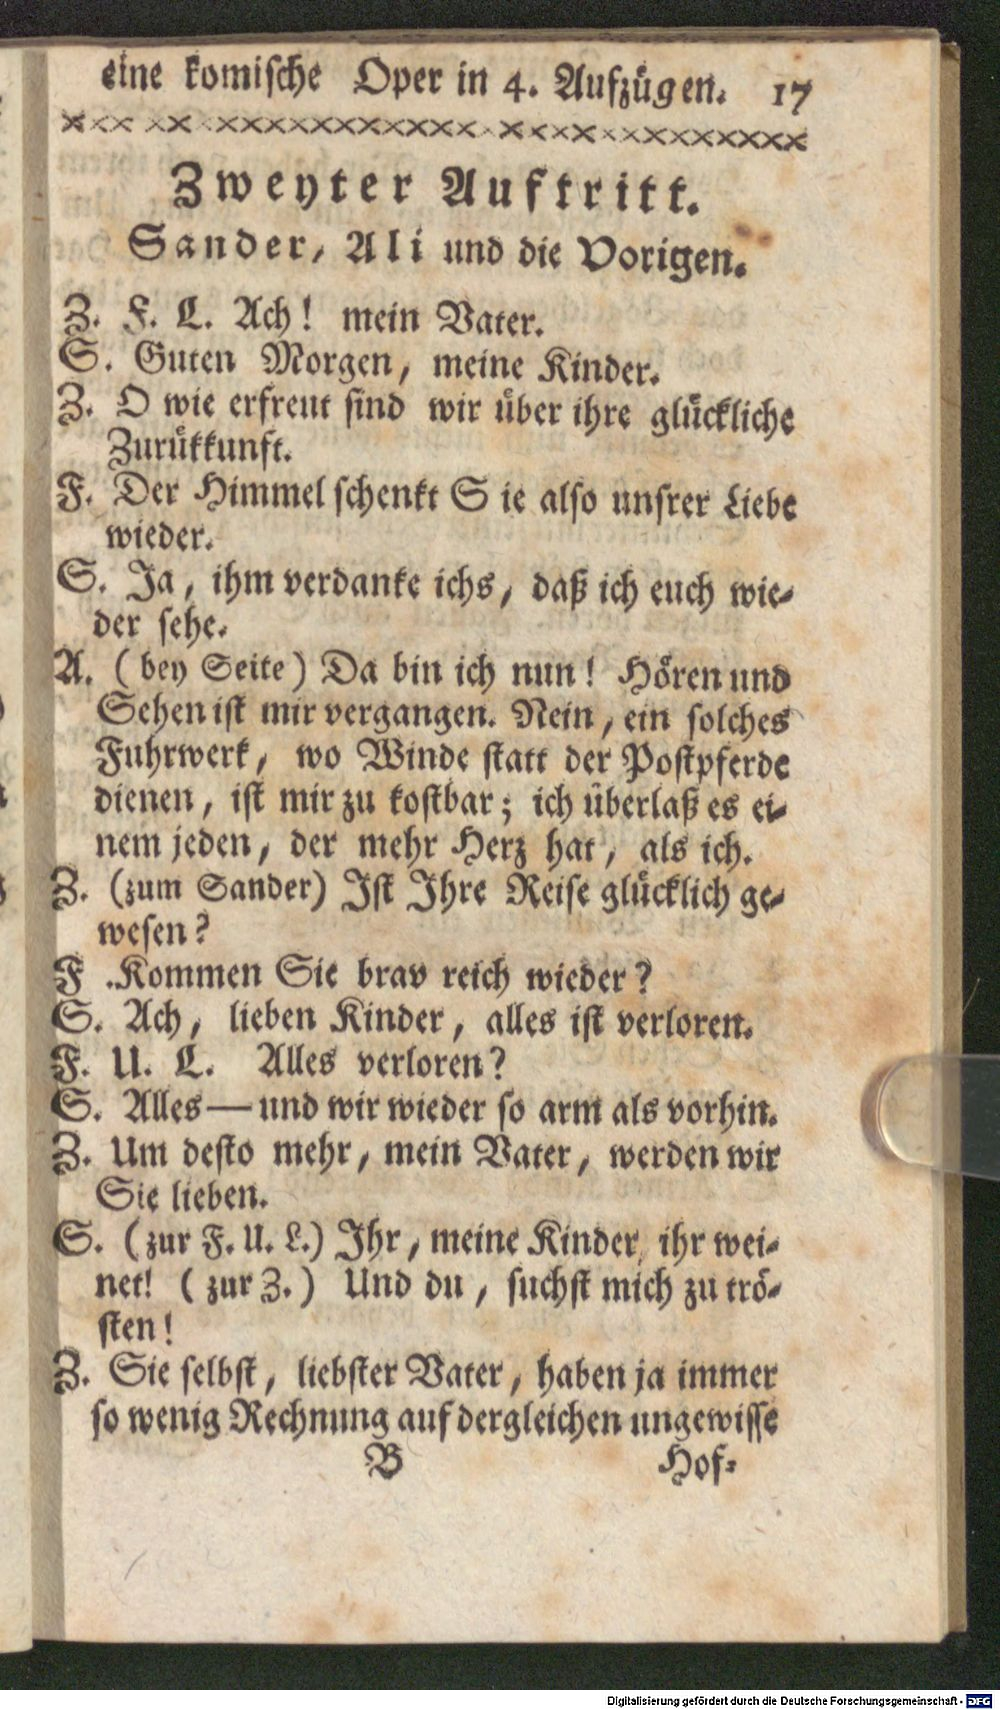 eine komische Oper in 4. Aufzügen. 17
Zweyter Auftritt.
Sander, Ali und die Vorigen.
Z. F. L. Ach! mein Vater.
S. Guten Morgen, meine Kinder.
Z. O wie erfreut sind wir über ihre glückliche
Zurükkunft.
F. Der Himmel schenkt S ie also unsrer Liebe
wieder.
S. Ja, ihm verdanke ichs, daß ich euch wie-
der sehe.
A. (bey Seite) Da bin ich nun! Hören und
Sehen ist mir vergangen. Nein, ein solches
Fuhrwerk, wo Winde statt der Postpferde
dienen, ist mir zu kostbar; ich überlaß es ei-
nem jeden, der mehr Herz hat, als ich.
Z. (zum Sander) Ist Ihre Reise glücklich ge-
wesen?
F .Kommen Sie brav reich wieder?
S. Ach, lieben Kinder, alles ist verloren.
F. U. L. Alles verloren?
S. Alles — und wir wieder so arm als vorhin.
Z. Um desto mehr, mein Vater, werden wir
Sie lieben.
S. (zur F. U. L.) Ihr, meine Kinder, ihr wei-
net! (zur Z.) Und du, suchst mich zu trö-
sten!
Z. Sie selbst, liebster Vater, haben ja immer
so wenig Rechnung auf dergleichen ungewisse
B Hof-
Digitalisierung gefördert durch die Deutsche Forschungsgemeinschaft - DFG